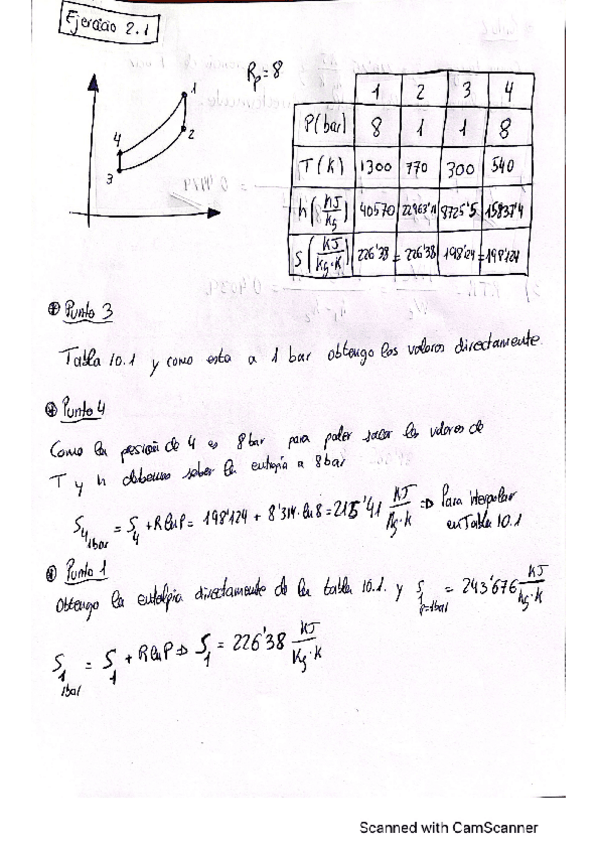 Ejercicio 2.1
Rp=8
1
2
4
3
1 2 3 4
P(bar) 8 1 1 8
T(K) 1300 770 300 540
h(KJ/Kg) 40570 22963'11 8725'5 15837'4
S(KJ/Kg·K) 226'38 = 226'38 198'124 = 198'124
Punto 3
Tabla 10.1 y como esta a 1 bar obtengo los valores directamente.
Punto 4
Como la presión de 4 es 8bar para poder sacar los valores de
T y h debemos saber la entropía a 8bar
S4 1bar = S4 + RlnP = 198'124 + 8'314·ln8 = 215'41 KJ/Kg·K => Para interpolar
en Tabla 10.1
Punto 1
Obtengo la entalpia directamente de la tabla 10.1. y S1 p=1bar = 243'676 KJ/Kg·K
S1 1bar = S1 + RlnP => S1 = 226'38 KJ/Kg·K
Scanned with CamScanner